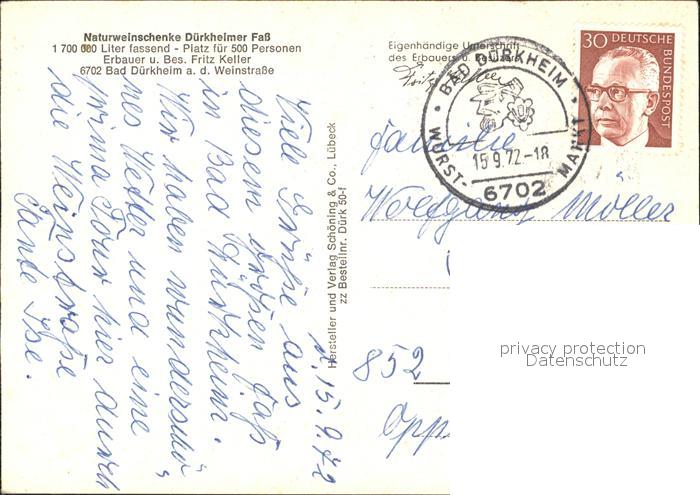 Naturweinschenke Dürkheimer Faß
1 700 000 Liter fassend - Platz für 500 Personen
Erbauer u. Bes. Fritz Keller
6702 Bad Dürkheim a. d. Weinstraße
Eigenhändige Unterschrift
des Erbauers u. Besitzers
Fritz Keller
30 DEUTSCHE
BUNDESPOST
BAD DÜRKHEIM
15.9.72-18
WURST- MARKT
6702
Familie
Wolfgang Möller
852
Hersteller und Verlag Schöning & Co., Lübeck
zz Bestellnr. Dürk 50-f
15.9.72
Viele Grüße aus
diesem großen Faß
in Bad Dürkheim.
Wir haben wunderschö-
nes Wetter und eine
prima Tour hier durch
die Weinstraße
Tante Ilse.
privacy protection
Datenschutz